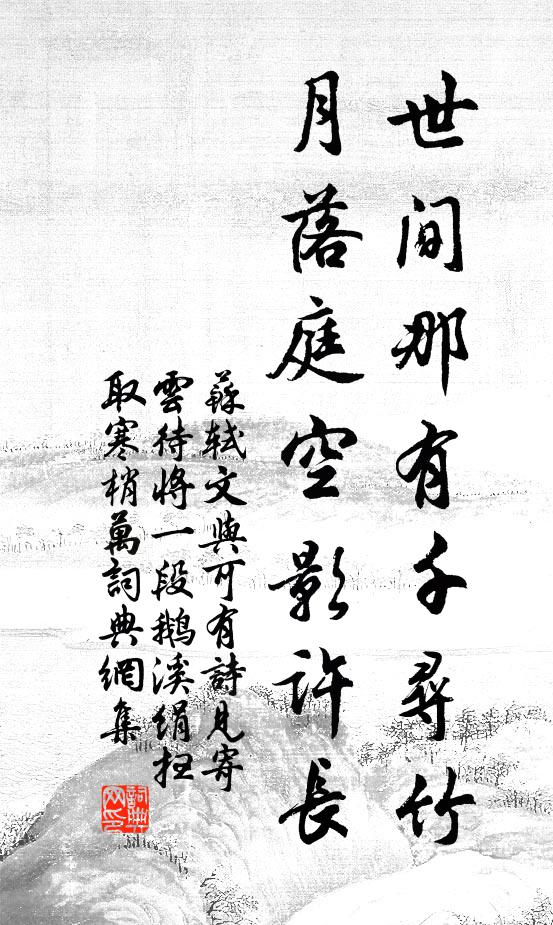 世間那有千尋竹
月落庭空影許長
蘇軾文與可有詩見寄
雲待將一段鵝溪絹扫
取寒梢萬詞典網集